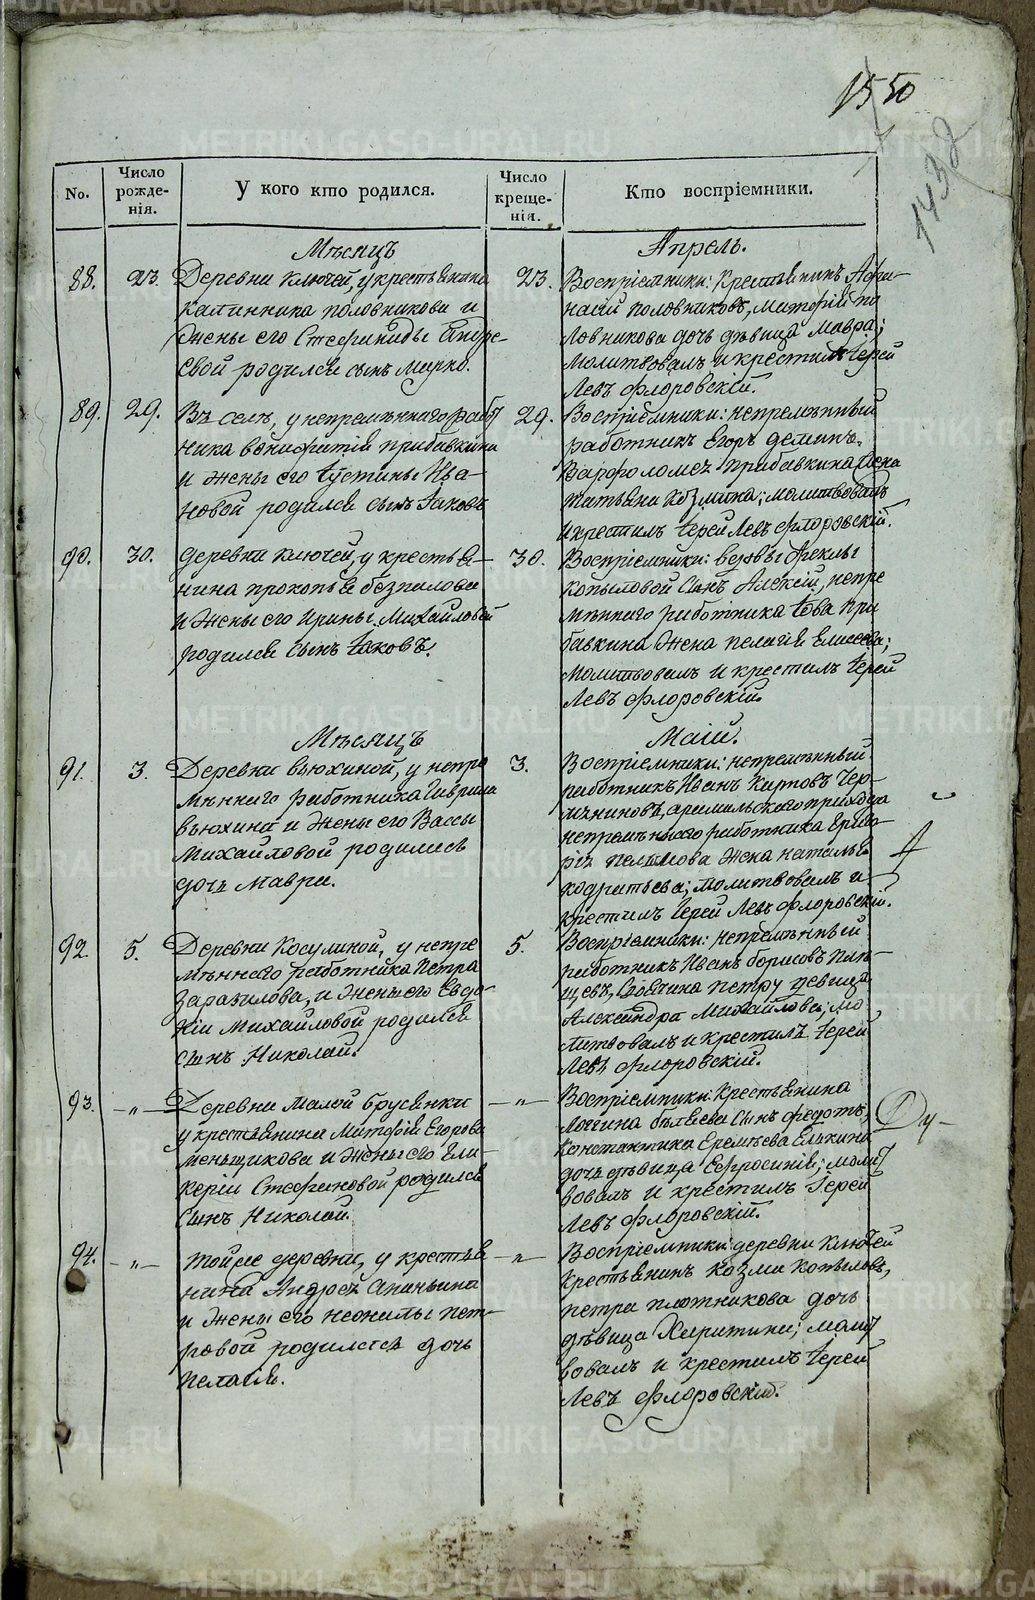 1550
1432
No.
Число рожде-нія.
У кого кто родился.
Число креще-нія.
Кто воспріемники.
Мѣсяцъ
Апрель.
88.
23.
Деревни Ключей, у крестьянина
Калинника Половникова и
жены его Стефаниды Андре-
евой родился сынъ Марко.
23.
Воспріемники: Крестьянинъ Афа-
насій Половниковъ, Матфія По
ловникова дочь дѣвица Мавра;
Молитвовалъ и крестилъ Іерей
Левъ Флоровскій.
89.
29.
Въ селѣ, у непремѣннаго работ
ника Вонифатія Прибавкина
и жены его Іустины Ива-
новой родился сынъ Іаковъ
29.
Воспріемники: непремѣнный
работникъ Егоръ Деминъ,
Варфоломея Прибавкина жена
Татьяна Козмина; молитвовалъ
и крестилъ Іерей Левъ Флоровскій.
90.
30.
Деревни Ключей, у крестья-
нина Прокопья Безпалова
и жены его Ирины Михайловой
родился сынъ Іаковъ.
30.
Воспріемники: вдовы Феклы
Копыловой сынъ Алексій, непре
мѣннаго работника Іова При
бавкина жена Пелагія Елисеева;
Молитвовалъ и крестилъ Іерей
Левъ Флоровскій.
Мѣсяцъ
Маій.
91.
3.
Деревни Вьюхиной, у непре
мѣннаго работника Гаврила
Вьюхина и жены его Вассы
Михайловой родилась
дочь Мавра.
3.
Воспріемники: непремѣнный
работникъ Иванъ Карповъ Чер-
арамильскаго прихода
непремѣннаго работника
жена Наталья
молитвовалъ и
крестилъ Іерей Левъ Флоровскій.
92.
5.
Деревни Косулиной, у непре
мѣннаго работника Петра
Заразилова, и жены его Евдо-
кіи Михайловой родился
сынъ Николай.
5.
Воспріемники: непремѣнный
работникъ Иванъ Борисовъ
Петру девица
Александра Михайлова; мо-
литвовалъ и крестилъ Іерей
Левъ Флоровскій.
93.
-„-
Деревни Малой Брусянки
у крестьянина Матфія Егорова
Меньщикова и жены его Гли-
керіи Стефановой родился
сынъ Николай.
-„-
Воспріемники: Крестьянина
Логгина Бѣляева сынъ Федотъ,
Константина Еремѣева Елькина
дочь дѣвица Ефросинія; молит
вовалъ и крестилъ Іерей
Левъ Флоровскій.
94.
-„-
Той же деревни, у крестья
нина Андрея Ананьина
и жены его Неонилы Пет-
ровой родилась дочь
Пелагія.
-„-
Воспріемники: деревни Ключей
крестьянинъ Козма Копыловъ,
Петра Плотникова дочь
дѣвица Харитина; молит
вовалъ и крестилъ Іерей
Левъ Флоровскій.
METRIKI.GASO-URAL.RU